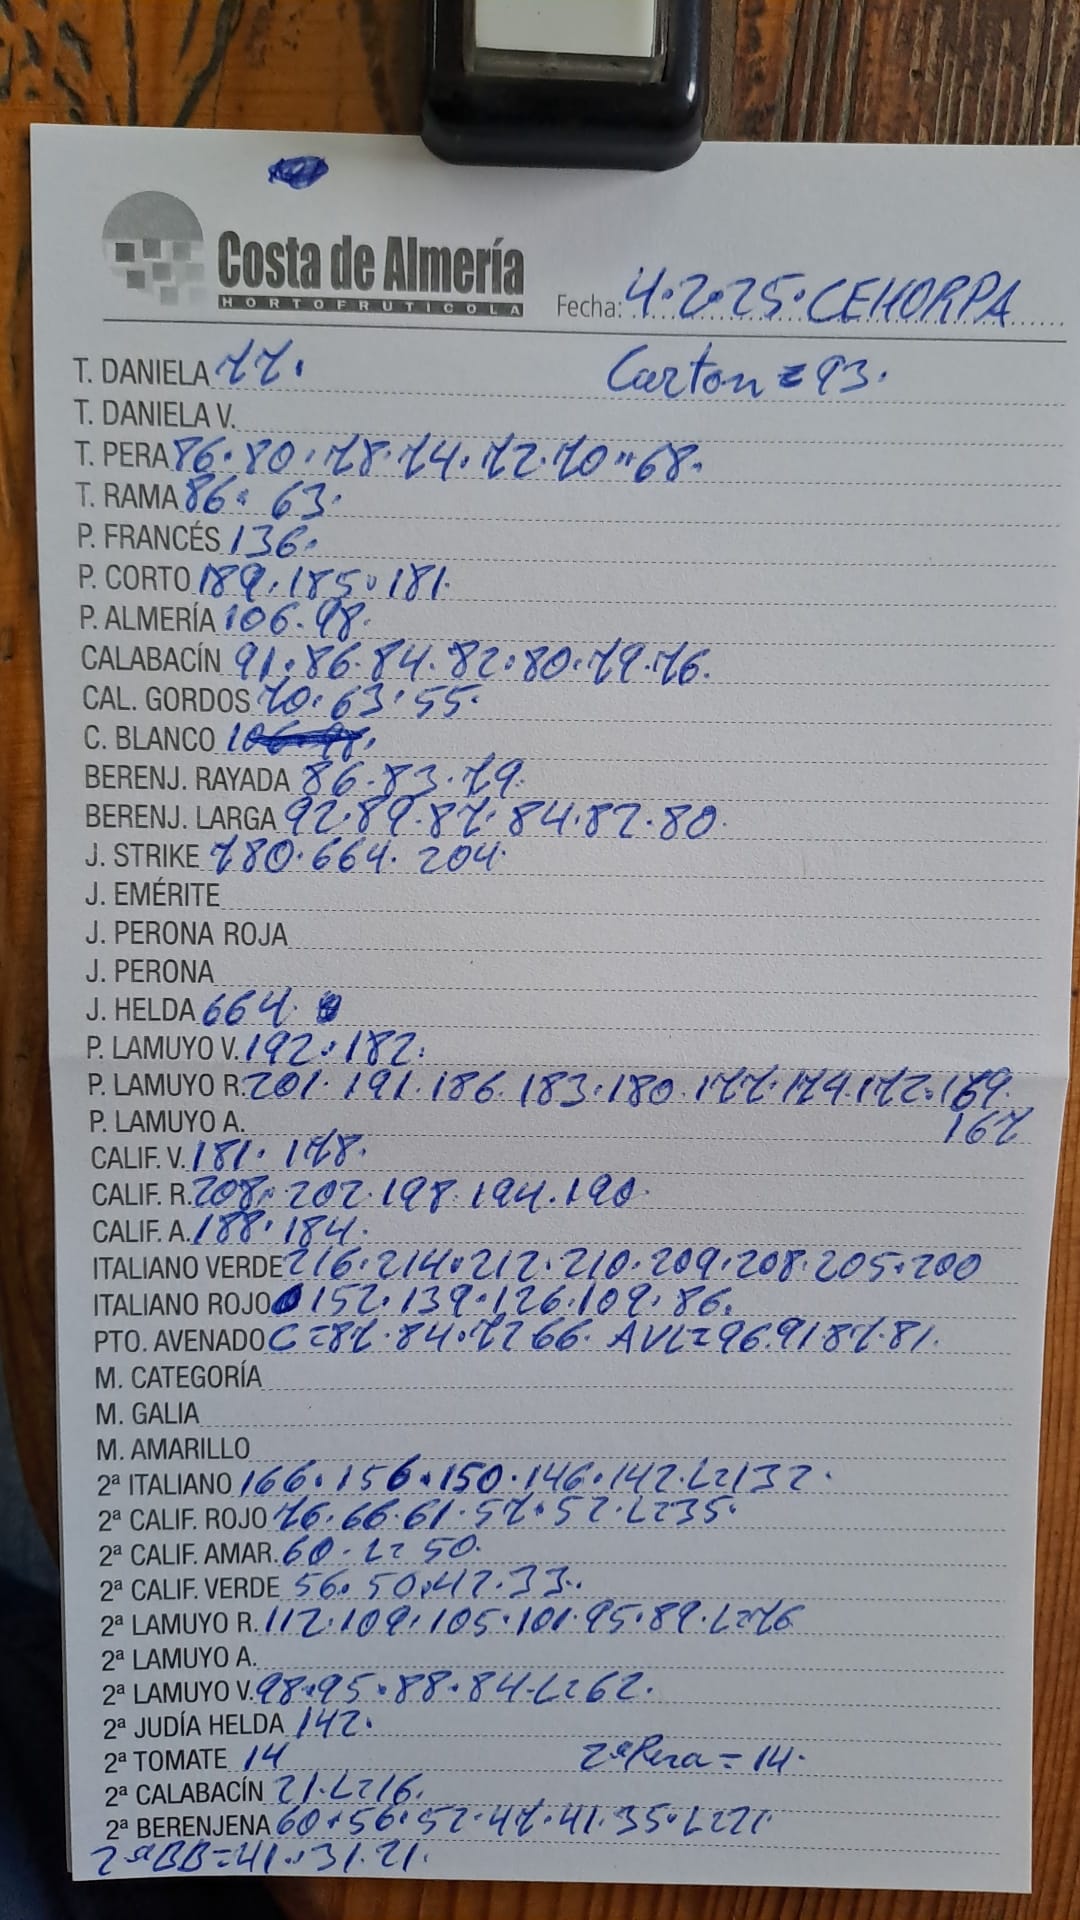 Costa de Almería
HORTOFRUTICOLA
Fecha: 4.2.25. CEHORPA
T. DANIELA 77. Carton = 93.
T. DANIELA V.
T. PERA 86. 80. 78. 74. 72. 70 " 68.
T. RAMA 86. 63.
P. FRANCÉS 136.
P. CORTO 189. 185. 181.
P. ALMERÍA 106. 98.
CALABACÍN 91. 86. 84. 82. 80. 79. 76.
CAL. GORDOS 70. 63. 55.
C. BLANCO
BERENJ. RAYADA 86. 83. 79.
BERENJ. LARGA 92. 89. 87. 84. 82. 80.
J. STRIKE 780. 664. 204.
J. EMÉRITE
J. PERONA ROJA
J. PERONA
J. HELDA 664.
P. LAMUYO V. 192. 182.
P. LAMUYO R. 201. 191. 186. 183. 180. 177. 174. 172. 169.
167
P. LAMUYO A.
CALIF. V. 181. 178.
CALIF. R. 208. 202. 198. 194. 190.
CALIF. A. 188. 184.
ITALIANO VERDE 216. 214. 212. 210. 209. 208. 205. 200
ITALIANO ROJO 152. 139. 126. 109. 86.
PTO. AVENADO C = 87. 84. 72 66. AVL = 96. 91 87. 81.
M. CATEGORÍA
M. GALIA
M. AMARILLO
2ª ITALIANO 166. 156. 150. 146. 142. L = 132.
2ª CALIF. ROJO 76. 66. 61. 57. 52. L = 35.
2ª CALIF. AMAR. 60. L = 50.
2ª CALIF. VERDE 56. 50. 42. 33.
2ª LAMUYO R. 112. 109. 105. 101. 95. 89. L = 76
2ª LAMUYO A.
2ª LAMUYO V. 98. 95. 88. 84. L = 62.
2ª JUDÍA HELDA 142.
2ª TOMATE 14 2ª Pera = 14.
2ª CALABACÍN 21. L = 16.
2ª BERENJENA 60. 56. 52. 47. 41. 35. L = 21.
2ª BB = 41. 31. 21.